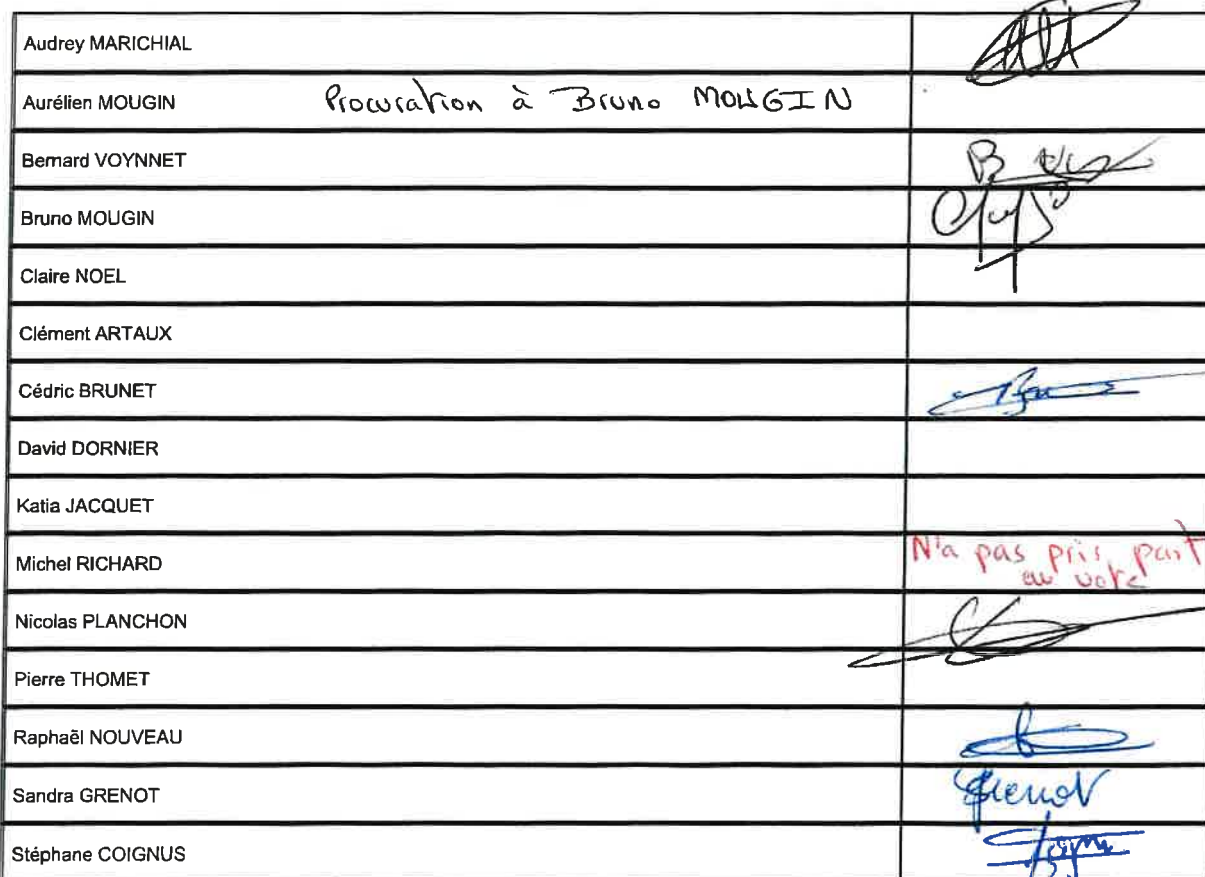 Audrey MARICHIAL
Aurélien MOUGIN Procuration à Bruno MOUGIN
Bernard VOYNNET
Bruno MOUGIN
Claire NOEL
Clément ARTAUX
Cédric BRUNET
David DORNIER
Katia JACQUET
Michel RICHARD N'a pas pris part
au vote
Nicolas PLANCHON
Pierre THOMET
Raphaël NOUVEAU
Sandra GRENOT Grenot
Stéphane COIGNUS